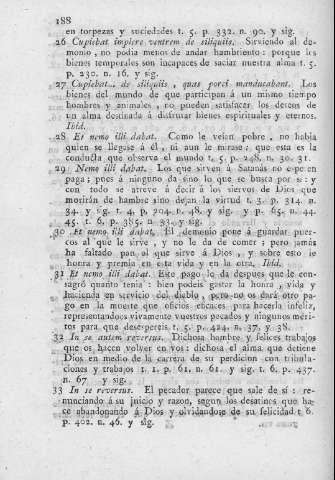 188
en torpezas y suciedades t. 5. p. 332. n. 90. y sig.
26 Cupiebat implere ventrem de siliquis. Sirviendo al de-
monio, no podia menos de andar hambriento: porque los
bienes temporales son incapaces de saciar nuestra alma t. 5.
p. 230. n. 16. y sig.
27 Cupiebat.. de siliquis, quas porci manducabant. Los
bienes del mundo de que participan á un mismo tiempo
hombres y animales, no pueden satisfacer los deseos de
un alma destinada á disfrutar bienes espirituales y eternos.
Ibid.
28 Et nemo illi dabat. Como le veían pobre, no habia
quien se llegase á él, ni aun le mirase: que esta es la
conducta que observa el mundo t. 5. p. 248. n. 30. 31.
29 Nemo illi dabat. Los que sirven á Satanás no esperen
paga; pues á ninguno da sino lo que se busca por sí: y
con todo se atreve á decir á los siervos de Dios que
morirán de hambre sino dejan la virtud t. 3. p. 314. n.
34. y sig. t. 4. p. 204. n. 48. y sig. y p. 65. n. 44.
45. t. 6. p. 385. n. 31. y sig.
30 Et nemo illi dabat. El demonio pone á guardar puer-
cos al que le sirve, y no le da de comer; pero jamás
ha faltado pan al que sirve á Dios, y sobre esto le
honra y premia en esta vida y en la otra. Ibid.
31 Et nemo illi dabat. Este pago le da despues que le con-
sagró quanto tenia: bien podeis gastar la honra, vida y
hacienda en servicio del diablo, pero no os dará otro pa-
go en la muerte que oficios eficaces para hacerla infeliz,
representandoos vivamente vuestros pecados y ningunos méri-
tos para que desespereis t. 5. p. 424. n. 37. y 38.
32 In se autem reversus. Dichosa hambre y felices trabajos
que os hacen volver en vos: dichosa el alma que detiene
Dios en medio de la carrera de su perdicion con tribula-
ciones y trabajos t. 1. p. 61. n. 61. y sig. t. 6. p. 437.
n. 67 y sig.
33 In se reversus. El pecador parece que sale de sí: re-
nunciando á su juicio y razon, segun los desatinos que ha-
ce abandonando á Dios y olvidandose de su felicidad t. 6.
p. 402. n. 46. y sig.